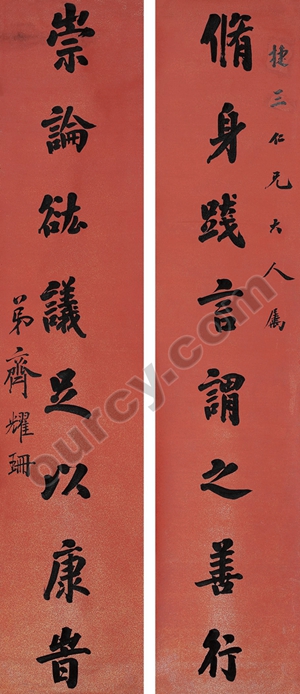 捷三仁兄大人属
脩身踐言謂之善行
崇論谹議足以康旹
弟齊耀珊
ourcy.com